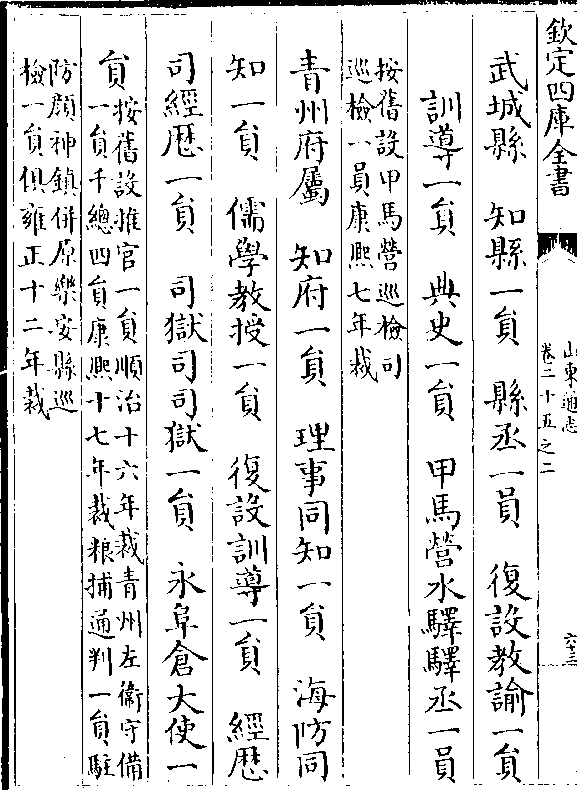 欽定四庫全書
山東通志
卷二十五之二
六十三
武城縣　知縣一員　縣丞一員　復設教諭一員
訓導一員　典史一員　甲馬營水驛驛丞一員
按舊設甲馬營巡檢司
巡檢一員康熙七年裁
青州府屬　知府一員　理事同知一員　海防同
知一員　儒學教授一員　復設訓導一員　經歷
司經歷一員　司獄司司獄一員　永阜倉大使一
員
按舊設推官一員順治十六年裁青州左衛守備
一員千總四員康熙十七年裁粮捕通判一員駐
防顔神鎮併原樂安縣巡
檢一員俱雍正十二年裁